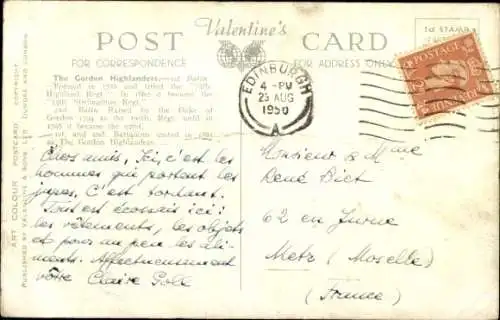 Valentine's
POST CARD
FOR CORRESPONDENCE
FOR ADDRESS ONLY
1d STAMP
The Gordon Highlanders.—1st Battn
Formed in 1758 and titled the "75th
Highland Regt."
"75th Stirlingshire Regt."
2nd Battn Raised by the Duke of
Gordon 1794 as the 100th Regt. until in
it became the 92nd.
1st, and 2nd Battalions united in 1881
as The Gordon Highlanders
ART COLOUR POSTCARD COPYRIGHT
PUBLISHED BY VALENTINE & SONS LTD DUNDEE AND LONDON
EDINBURGH
4 - PM
23 AUG
1950
A
POSTAGE
REVENUE
Chers amis, Ici, c'est les
hommes qui portent les
jupes. C'est tordant.
Tout est écossais ici:
les vêtements, les objets
et pour un peu les ali-
ments. Affectueusement
vôtre Claire Goll
Monsieur & Mme
René Bict
62 en Jurue
Metz (Moselle)
(France)